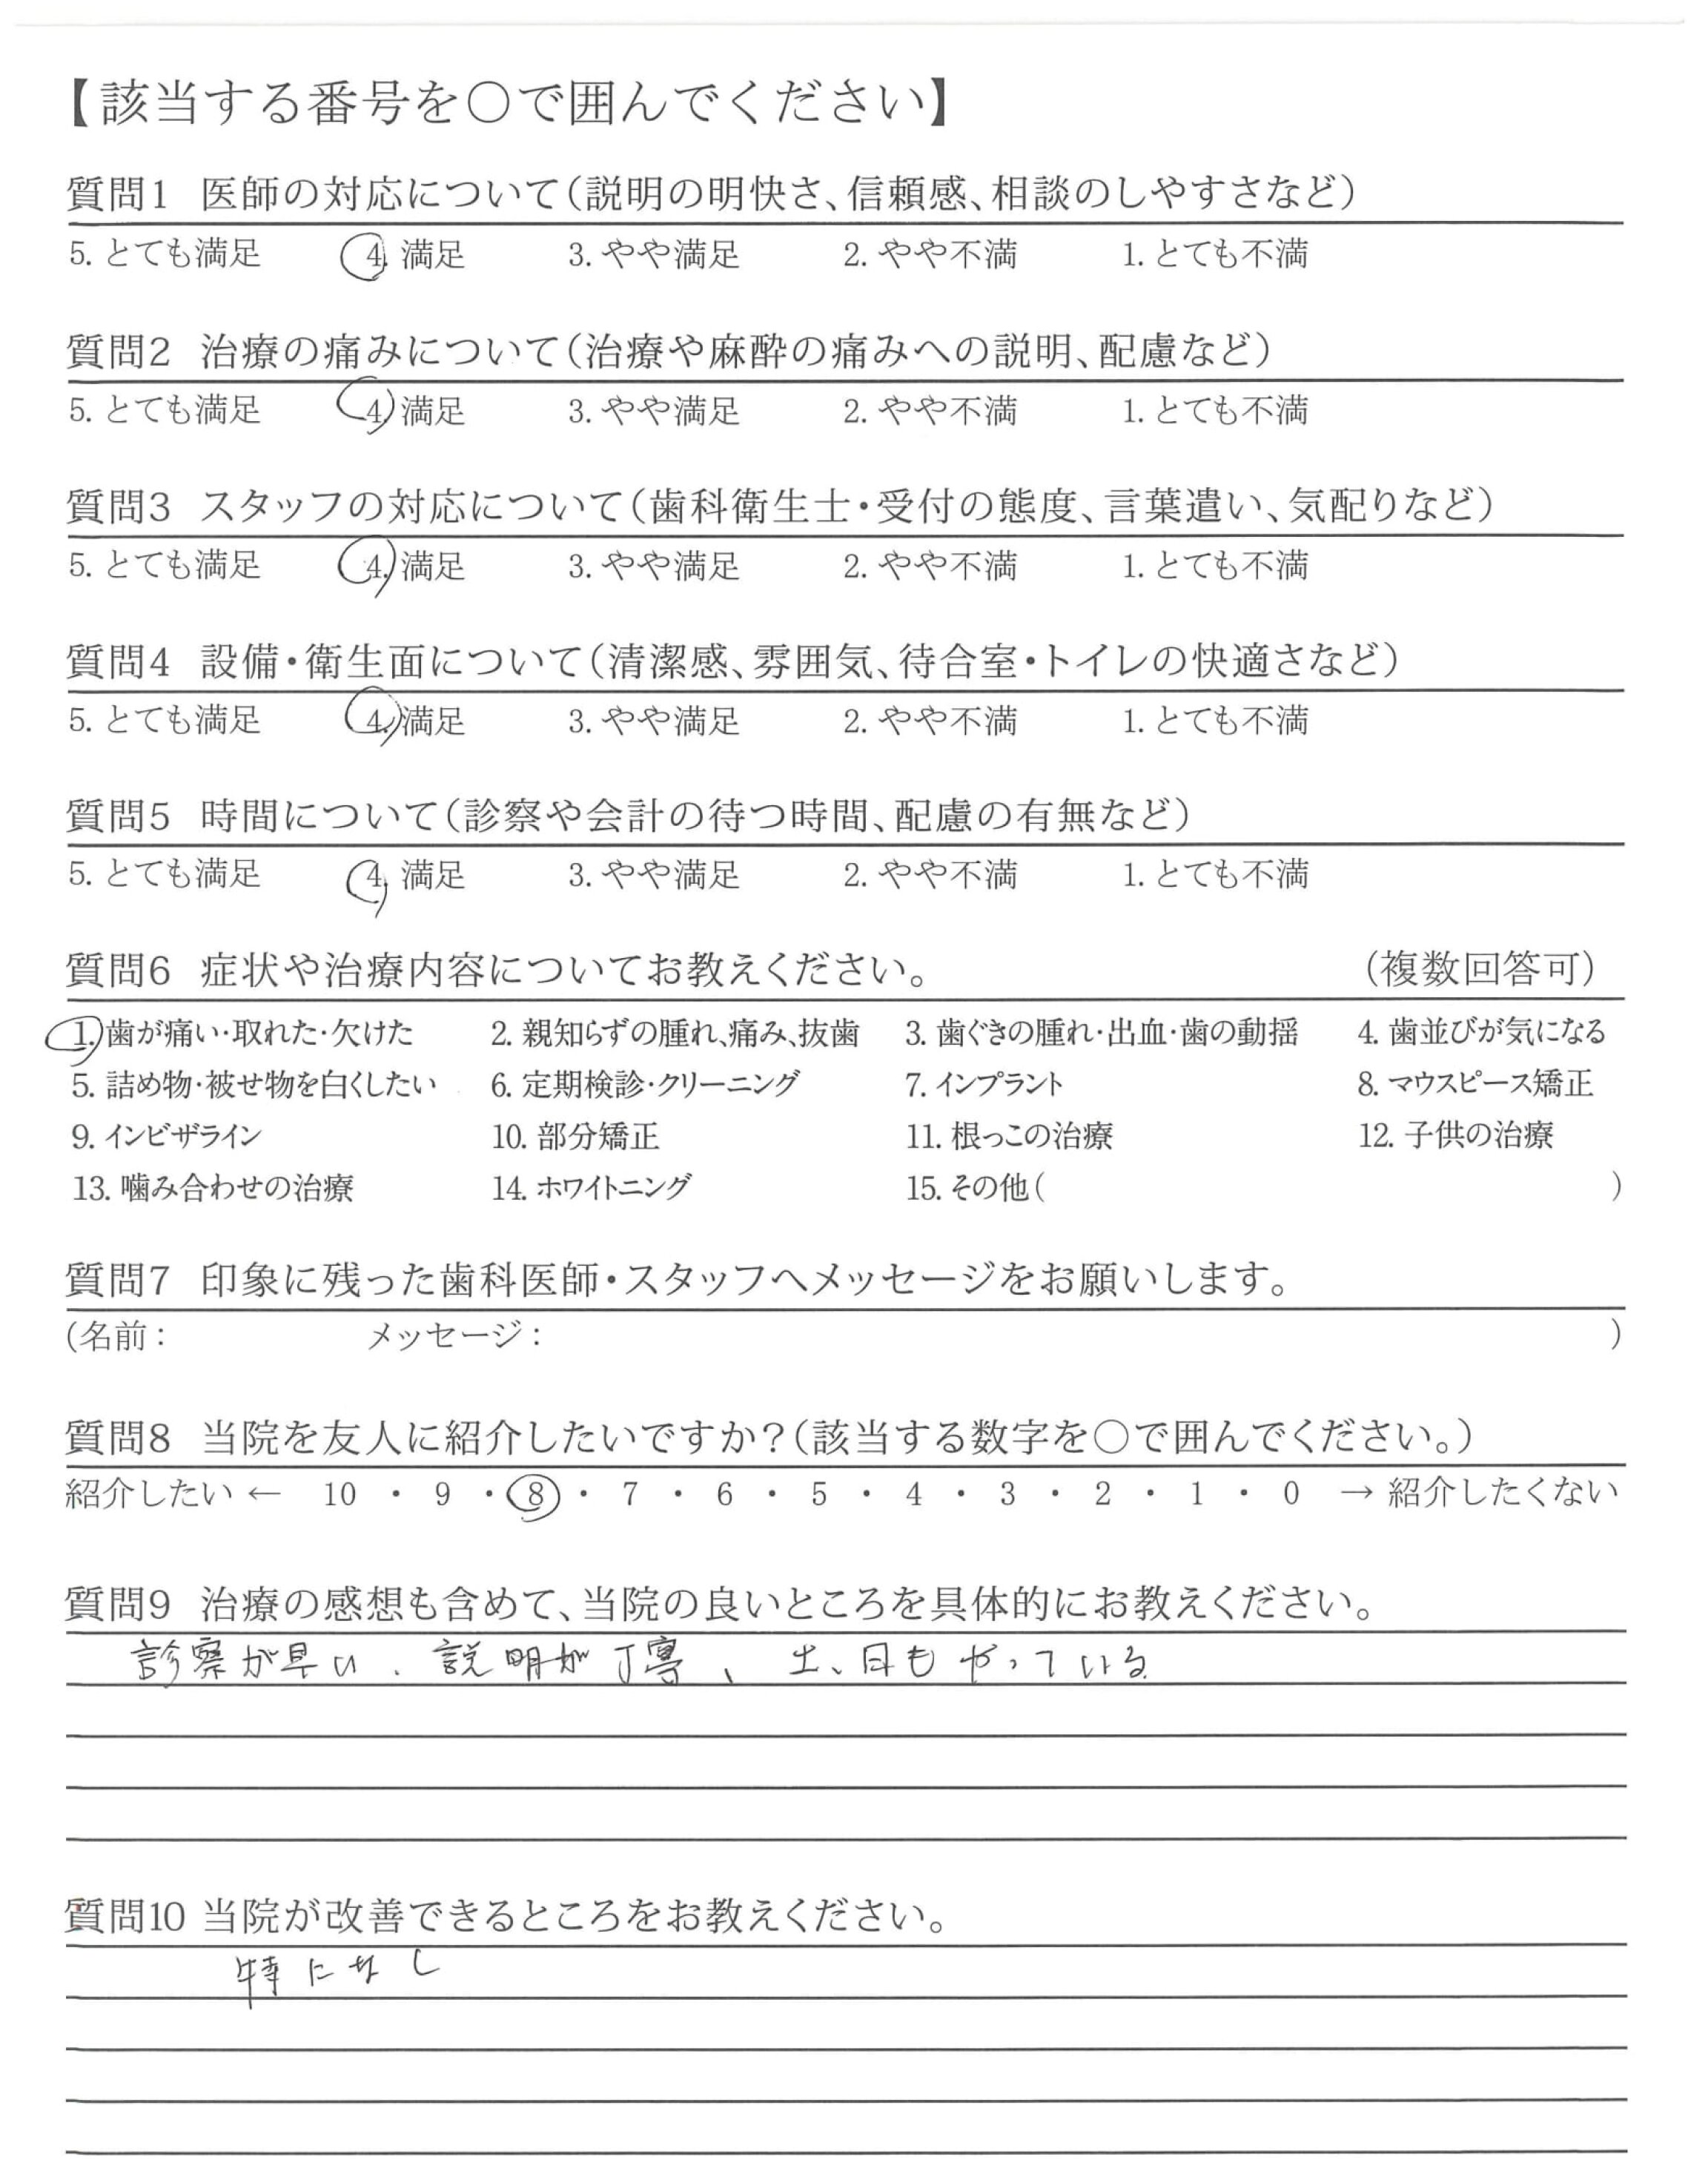 【該当する番号を○で囲んでください】
質問1 医師の対応について(説明の明快さ、信頼感、相談のしやすさなど)
5. とても満足 4. 満足 3. やや満足 2. やや不満 1. とても不満
質問2 治療の痛みについて(治療や麻酔の痛みへの説明、配慮など)
5. とても満足 4. 満足 3. やや満足 2. やや不満 1. とても不満
質問3 スタッフの対応について(歯科衛生士・受付の態度、言葉遣い、気配りなど)
5. とても満足 4. 満足 3. やや満足 2. やや不満 1. とても不満
質問4 設備・衛生面について(清潔感、雰囲気、待合室・トイレの快適さなど)
5. とても満足 4. 満足 3. やや満足 2. やや不満 1. とても不満
質問5 時間について(診察や会計の待つ時間、配慮の有無など)
5. とても満足 4. 満足 3. やや満足 2. やや不満 1. とても不満
質問6 症状や治療内容についてお教えください。 (複数回答可)
1. 歯が痛い・取れた・欠けた 2. 親知らずの腫れ、痛み、抜歯 3. 歯ぐきの腫れ・出血・歯の動揺 4. 歯並びが気になる
5. 詰め物・被せ物を白くしたい 6. 定期検診・クリーニング 7. インプラント 8. マウスピース矯正
9. インビザライン 10. 部分矯正 11. 根っこの治療 12. 子供の治療
13. 噛み合わせの治療 14. ホワイトニング 15. その他( )
質問7 印象に残った歯科医師・スタッフへメッセージをお願いします。
(名前: メッセージ: )
質問8 当院を友人に紹介したいですか?(該当する数字を○で囲んでください。)
紹介したい ← 10 ・ 9 ・ 8 ・ 7 ・ 6 ・ 5 ・ 4 ・ 3 ・ 2 ・ 1 ・ 0 → 紹介したくない
質問9 治療の感想も含めて、当院の良いところを具体的にお教えください。
診察が早い、説明が丁寧、土、日もやっている
質問10 当院が改善できるところをお教えください。
特になし